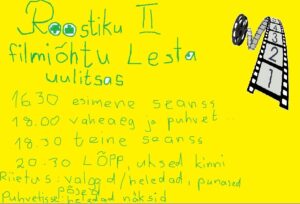 Roostiku II
filmiõhtu Lesta
uulitsas
16.30 esimene seanss
18.00 vaheaeg ja puhvet..
18.30 teine seanss
20.30 LÕPP, uksed kinni
Riietus: valged/heledad, punased
põsed
Puhvetisse: heledad näksid
3
2
1